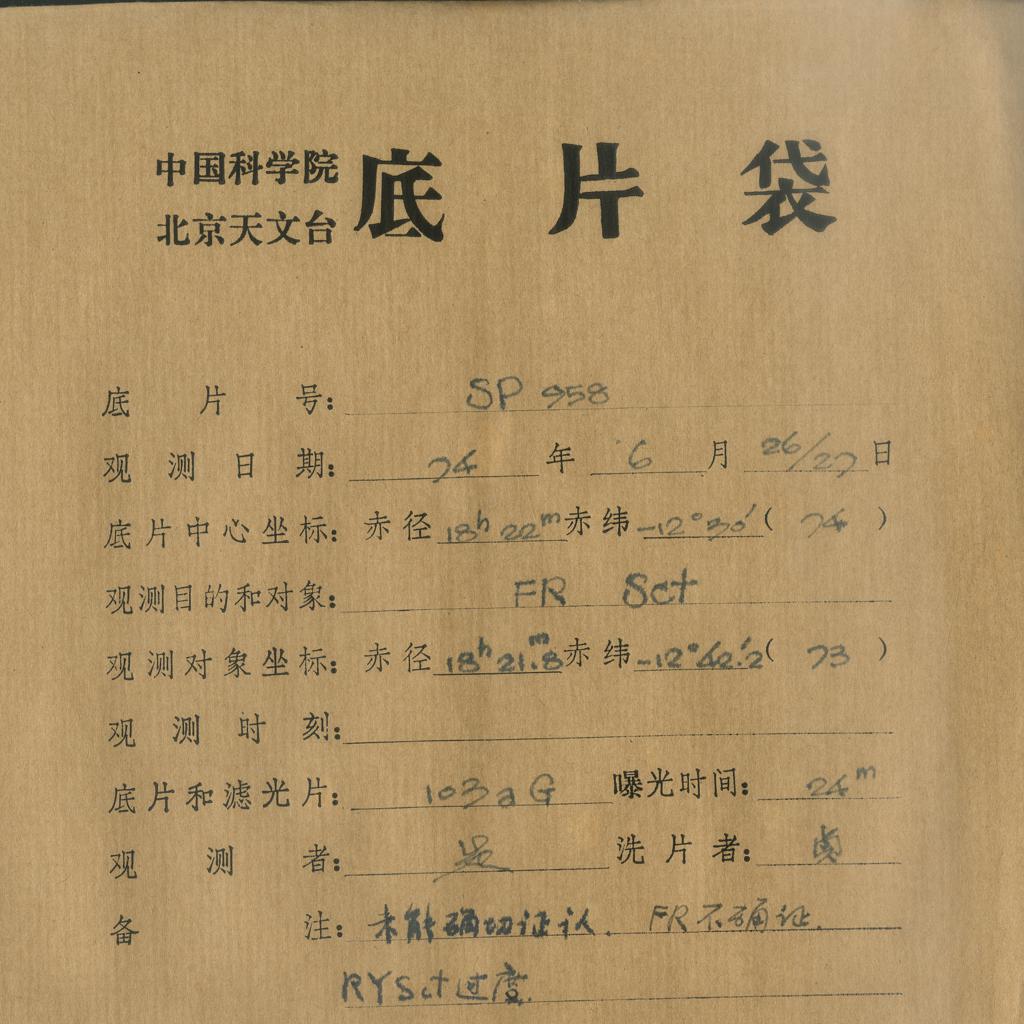 中国科学院
北京天文台
底片袋
底片号: SP 958
观测日期: 74 年 6 月 26/27 日
底片中心坐标: 赤径 18h 22m 赤纬 -12°30′ ( 74 )
观测目的和对象: FR Sct
观测对象坐标: 赤径 18h 21m.8 赤纬 -12°42′.2 ( 73 )
观测时刻:
底片和滤光片: 103aG 曝光时间: 24m
观测者: 洗片者:
备注: 未能确切证认. FR不确证.
RY Sct 过度.